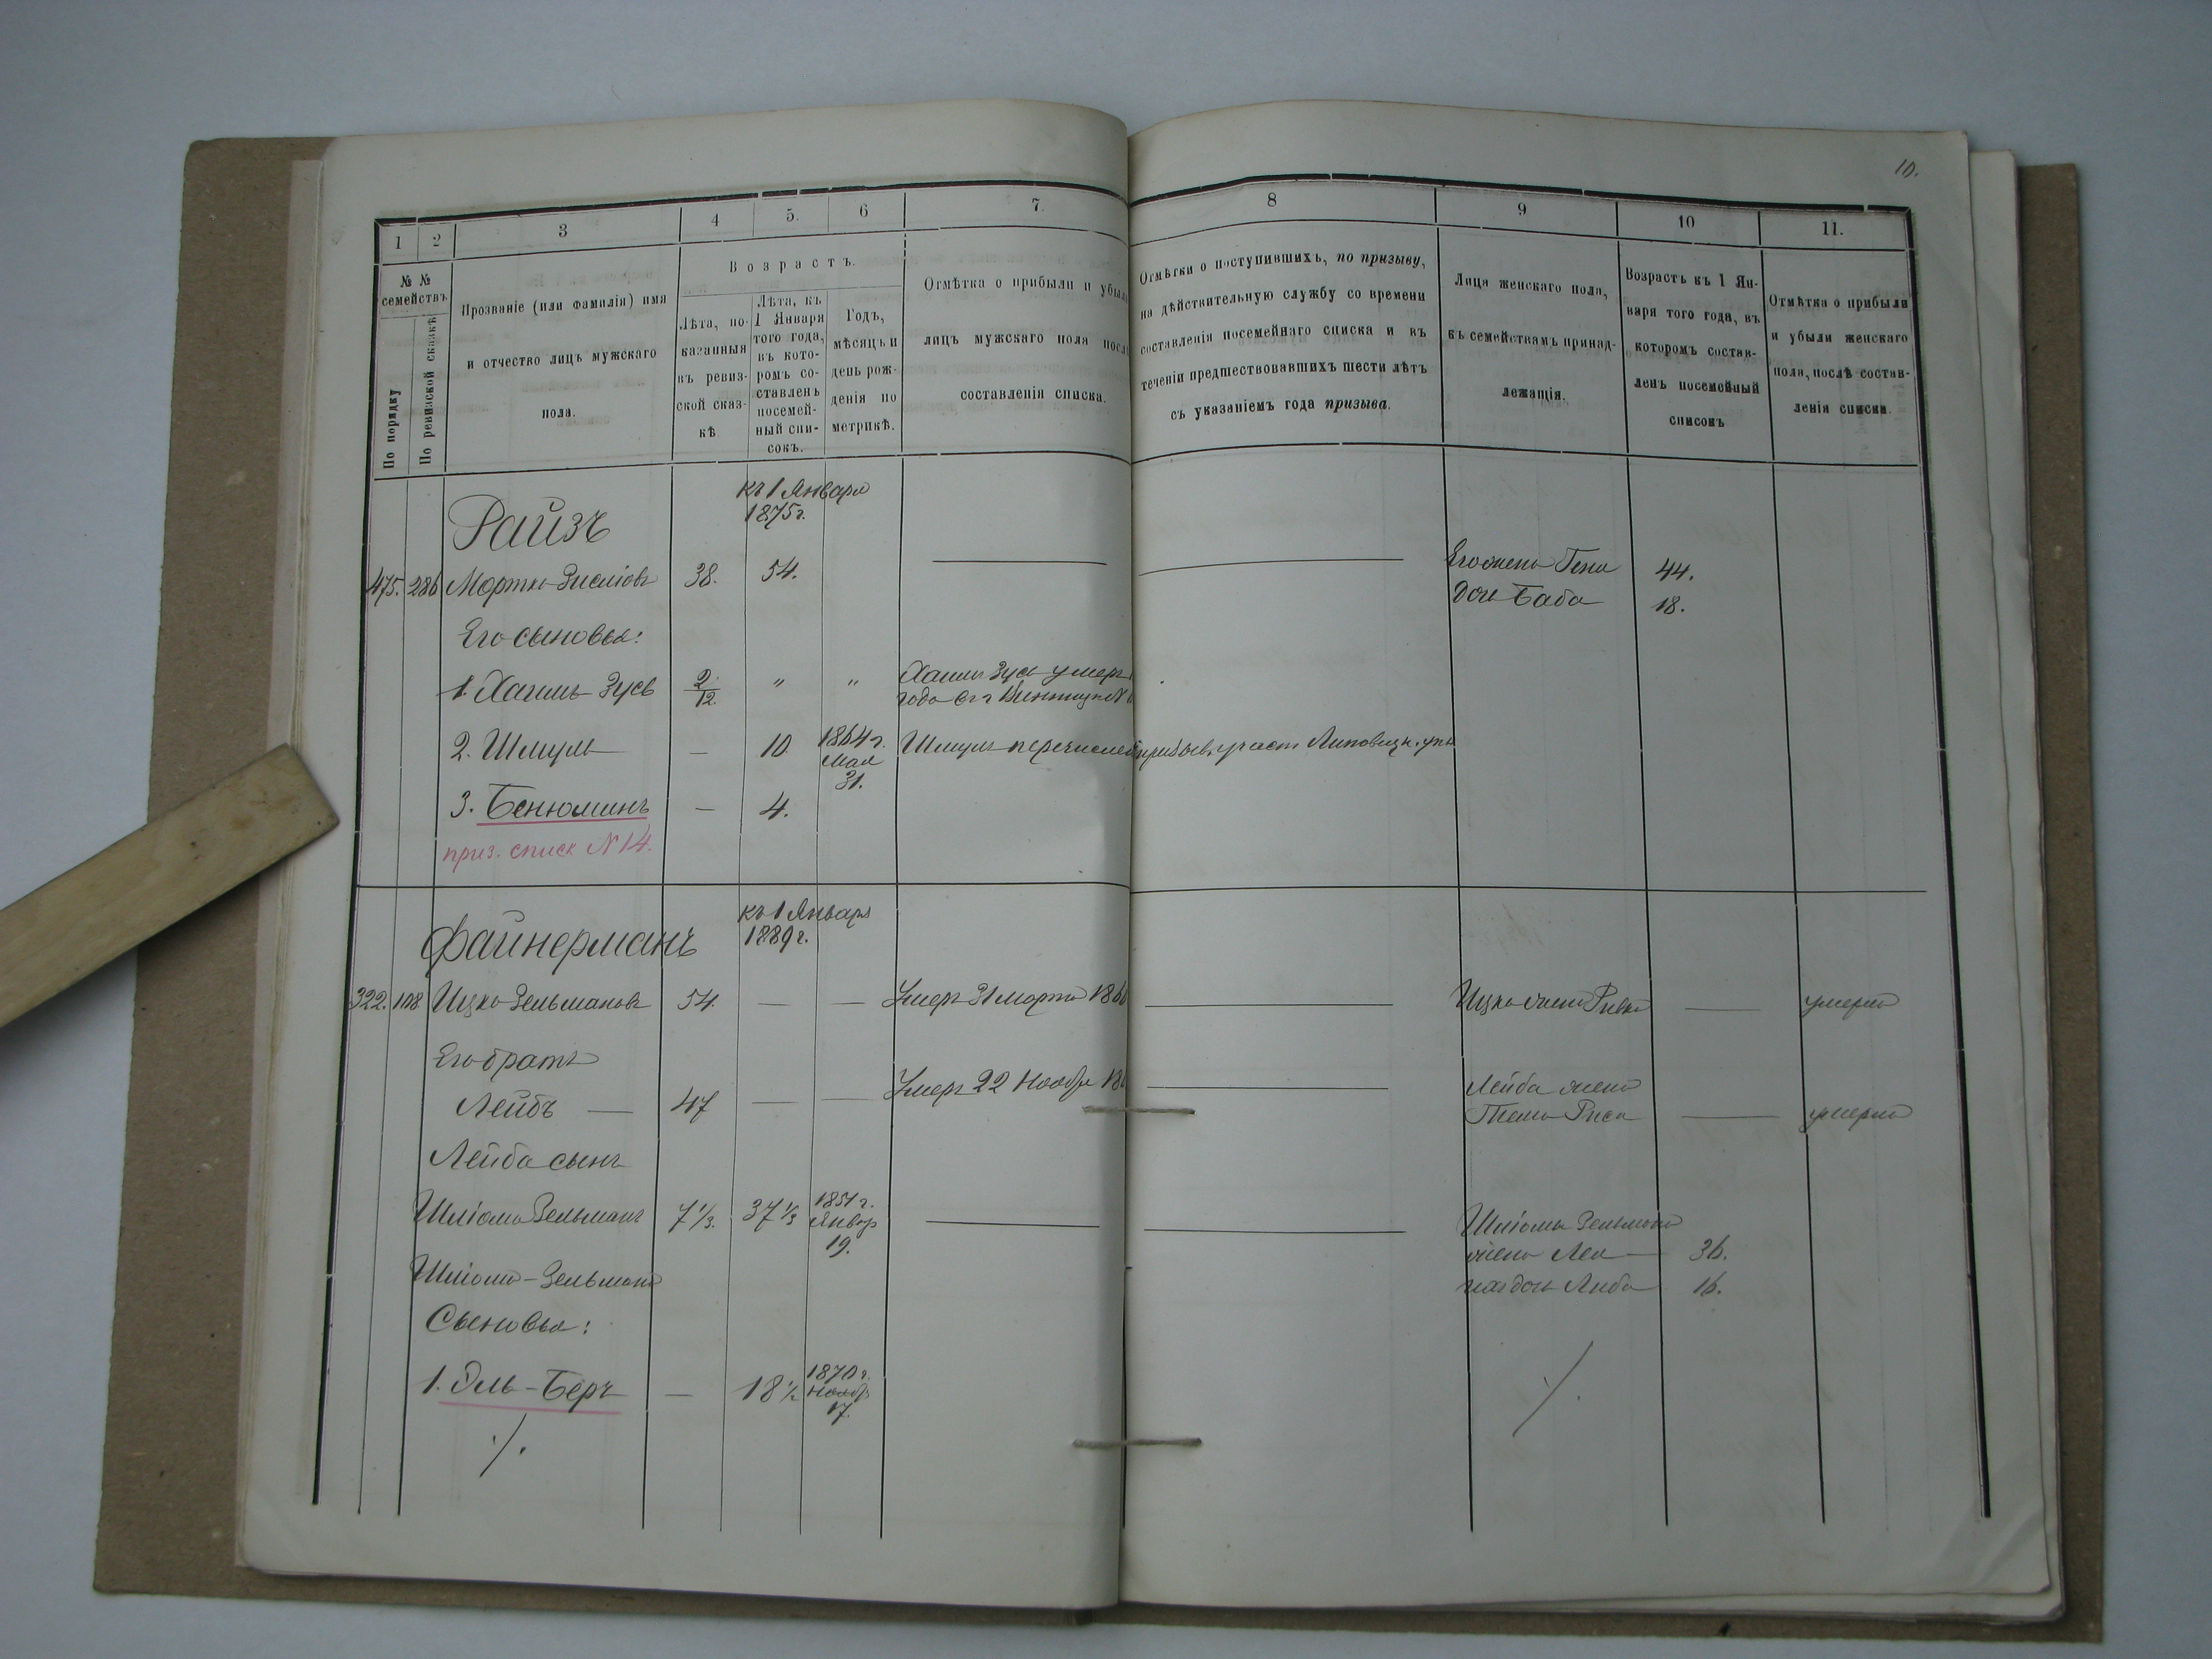 10.
1
2
3
4
5.
6
7.
8
9
10
11.
№ №
семействъ
По порядку
По ревизской сказкѣ
Прозваніе (или фамилія) имя
и отчество лицъ мужскаго
пола.
Возрастъ.
Лѣта, по-
казанныя
въ ревиз-
ской сказ-
кѣ
Лѣта, къ
1 Января
того года,
въ кото-
ромъ со-
ставленъ
посемей-
ный спи-
сокъ.
Годъ,
мѣсяцъ и
день рож-
денія по
метрикѣ.
Отмѣтка о прибыли и убыли
лицъ мужскаго пола послѣ
составленія списка.
Отмѣтки о поступившихъ, по призыву,
на дѣйствительную службу со времени
составленія посемейнаго списка и въ
теченіи предшествовавшихъ шести лѣтъ
съ указаніемъ года призыва.
Лица женскаго пола,
къ семействамъ принад-
лежащія.
Возрастъ къ 1 Ян-
варя того года, въ
которомъ состав-
ленъ посемейный
списокъ
Отмѣтка о прибыли
и убыли женскаго
пола, послѣ состав-
ленія списка.
къ 1 Января
1875 г.
Райзъ
475. 286 Мортко 38. 54. — — Его жена 44.
Дочь Баба 18.
Его сыновья:
1. Хаимъ-Зусь 2/12. " " Хаимъ Зусь умеръ
года въ г Винницѣ №
2. Шмуль — 10. 1864 г. Мая 31. Шмуль перечисленъ участ. Липовецк.
3. Бенюминъ — 4.
приз. списк № 14.
къ 1 Января
1889 г.
Файнерманъ
322. 108 Ицко Зельмановъ 54. — — Умеръ 31 Марта — Ицка жена Ривка — умерла
Его братъ
Лейбъ — 47 — — Умеръ 22 Ноябр — Лейба жена
— умерла
Лейба сынъ
Шліома Зельманъ 7 1/3. 37 1/3 1851 г. Январ 19. — — Шліомы Зельмана
жена Лея — 36.
Шліома-Зельмана
дочь Люба 16.
Сыновья:
1. Эль-Беръ — 18 1/2 1870 г. Ноябр 17.